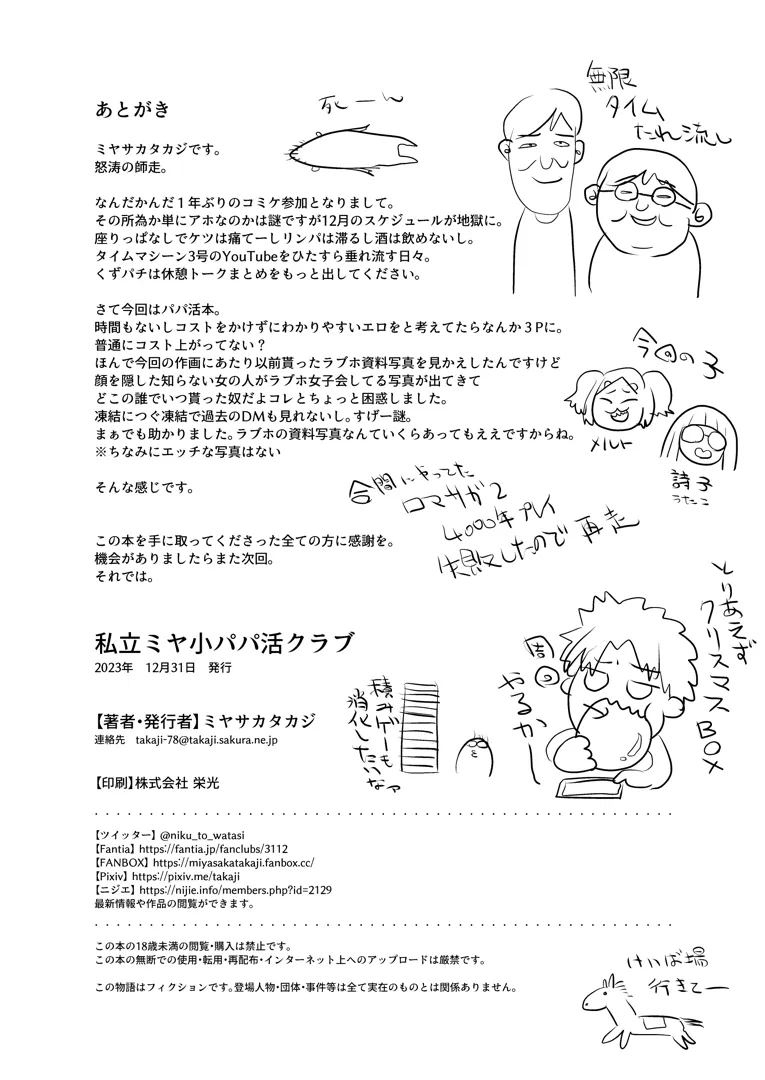 あとがき
死ーん
無限
タイム
たれ流し
ミヤサカタカジです。
怒涛の師走。
なんだかんだ１年ぶりのコミケ参加となりまして。
その所為か単にアホなのかは謎ですが12月のスケジュールが地獄に。
座りっぱなしでケツは痛てーしリンパは滞るし酒は飲めないし。
タイムマシーン3号のYouTubeをひたすら垂れ流す日々。
くずパチは休憩トークまとめをもっと出してください。
さて今回はパパ活本。
時間もないしコストをかけずにわかりやすいエロをと考えてたらなんか３Pに。
普通にコスト上がってない？
ほんで今回の作画にあたり以前貰ったラブホ資料写真を見かえしたんですけど
顔を隠した知らない女の人がラブホ女子会してる写真が出てきて
どこの誰でいつ貰った奴だよコレとちょっと困惑しました。
凍結につぐ凍結で過去のDMも見れないし。すげー謎。
まぁでも助かりました。ラブホの資料写真なんていくらあってもええですからね。
※ちなみにエッチな写真はない
今回の子
メルト
詩子
うたこ
そんな感じです。
合間にやってた
ロマサガ2
4000年プレイ
失敗したので再走
この本を手に取ってくださった全ての方に感謝を。
機会がありましたらまた次回。
それでは。
とりあえず
クリスマスBOX
周回
やるかー
積みゲーも
消化したいなァ
私立ミヤ小パパ活クラブ
2023年　12月31日　発行
【著者・発行者】ミヤサカタカジ
連絡先　takaji-78@takaji.sakura.ne.jp
【印刷】株式会社 栄光
【ツイッター】@niku_to_watasi
【Fantia】https://fantia.jp/fanclubs/3112
【FANBOX】https://miyasakatakaji.fanbox.cc/
【Pixiv】https://pixiv.me/takaji
【ニジエ】https://nijie.info/members.php?id=2129
最新情報や作品の閲覧ができます。
この本の18歳未満の閲覧・購入は禁止です。
この本の無断での使用・転用・再配布・インターネット上へのアップロードは厳禁です。
この物語はフィクションです。登場人物・団体・事件等は全て実在のものとは関係ありません。
けいば場
行きてー